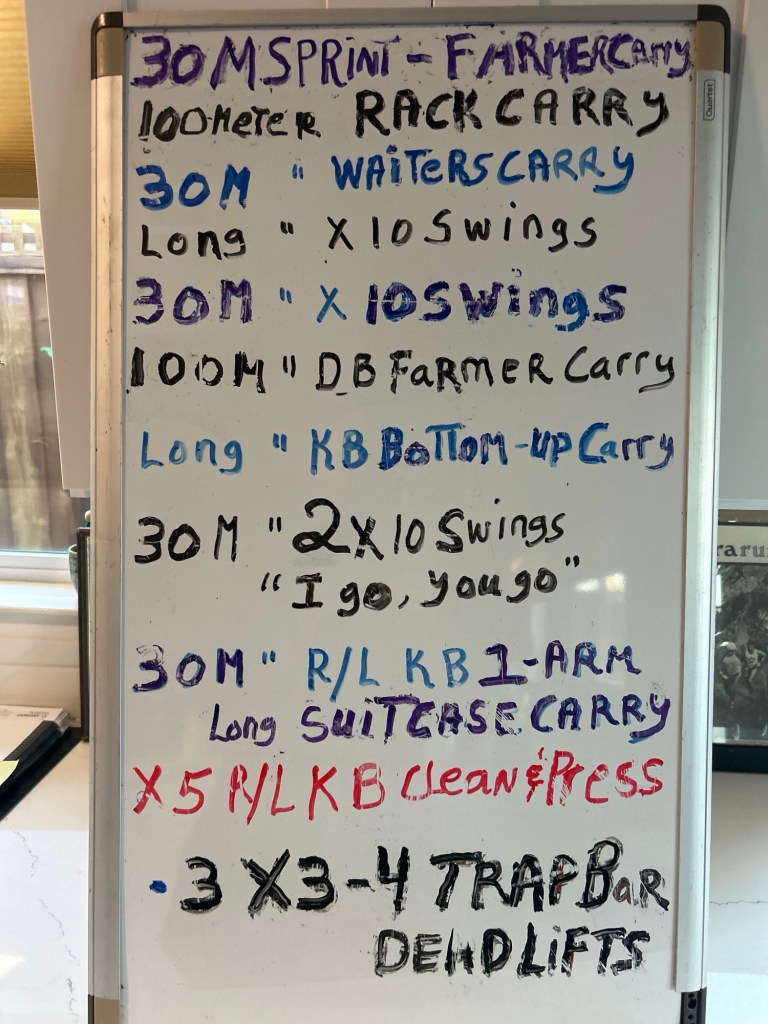 30M SPRINT - FARMER Carry
100 METER RACK CARRY
Quartet
30M " WAITERS CARRY
Long " X 10 Swings
30M " X 10 Swings
100M " DB FaRmeR Carry
Long " KB BoTTom-up Carry
30M " 2X10 Swings
"I go, you go"
raru
30M " R/L KB 1-ARM
Long SUITCASE CARRY
X5 R/L KB Clean & Press
• 3 X 3-4 TRAP BaR
DEADLIFTS